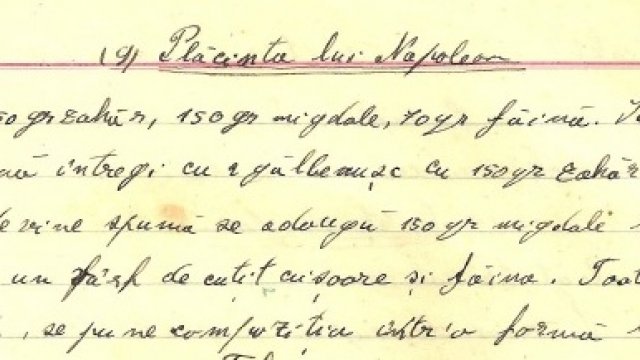 (9) Plăcinta lui Napoleon
50 gr zahăr, 150 gr migdale, 70 gr făină.
întregi cu 2 gălbenușe cu 150 gr zahăr
vine spumă se adougă 150 gr migdale
un vârf de cutit cuișoare și făina. Toat
, se pune compoziția intr'o formă